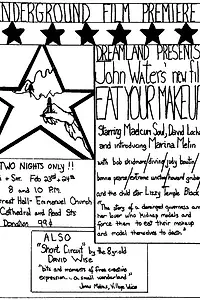 UNDERGROUND FILM PREMIERE
DREAMLAND PRESENTS
John Waters' new film
EAT YOUR MAKEUP
Starring Maelcum Soul, David Lochary
and introducing Marina Melin
with bob skidmore/divine/judy boutin/
bonnie pearce/extreme unction/howard gruber
and the child star Lizzy Temple Black
"The story of a deranged governess and
her lover who kidnap models and
force them to eat their makeup
and model themselves to death"
TWO NIGHTS ONLY!!
Fri + Sat. Feb 23rd + 24th
8 and 10 P.M.
Emanuel Church
Cathedral and Read Sts
Donation 99¢
ALSO
"Short Circuit" by the 8 yr old
DAVID WISE
"bits and moments of free creative
expression... a small wonderland"
Jonas Mekas, Village Voice